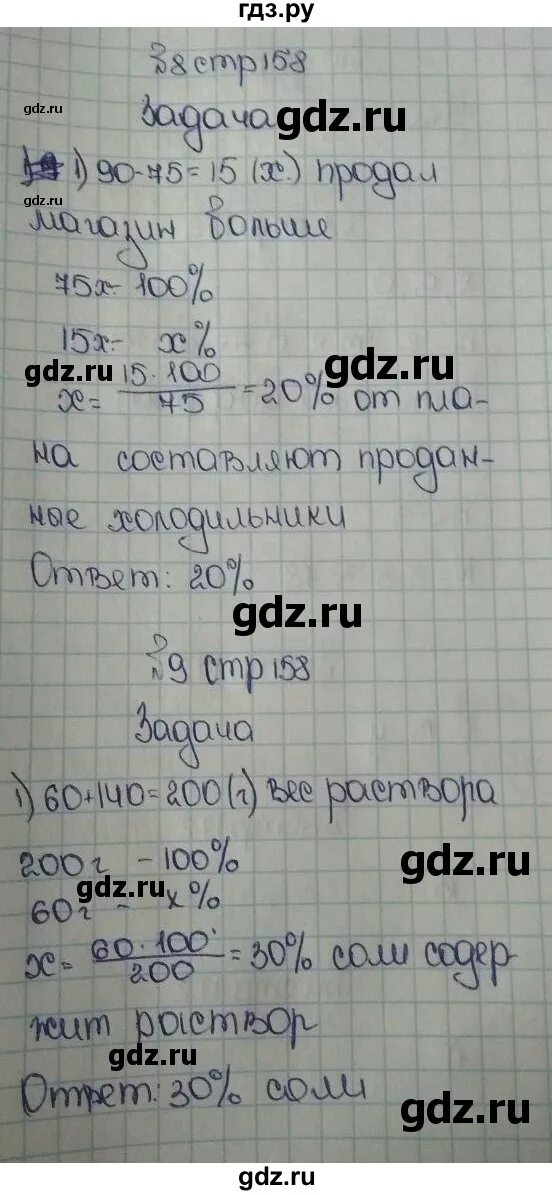 гдз.ру
№8 стр 158
gdz.ru
Задача gdz.ru
1) 90-75=15 (х.) продал
gdz.ru
магазин больше
75х- 100%
15х- х%
gdz.ru gdz.ru
х= 15·100/75 =20% от пла-
на составляют продан-
ные холодильники
Ответ: 20%
gdz.ru
№9 стр 158
Задача
1) 60+140=200(г) вес раствора
200г -100% gdz.ru
gdz.ru
60г - х%
х= 60·100/200 =30% соли содер
жит раствор
gdz.ru
Ответ: 30% соли gdz.ru
gdz.ru